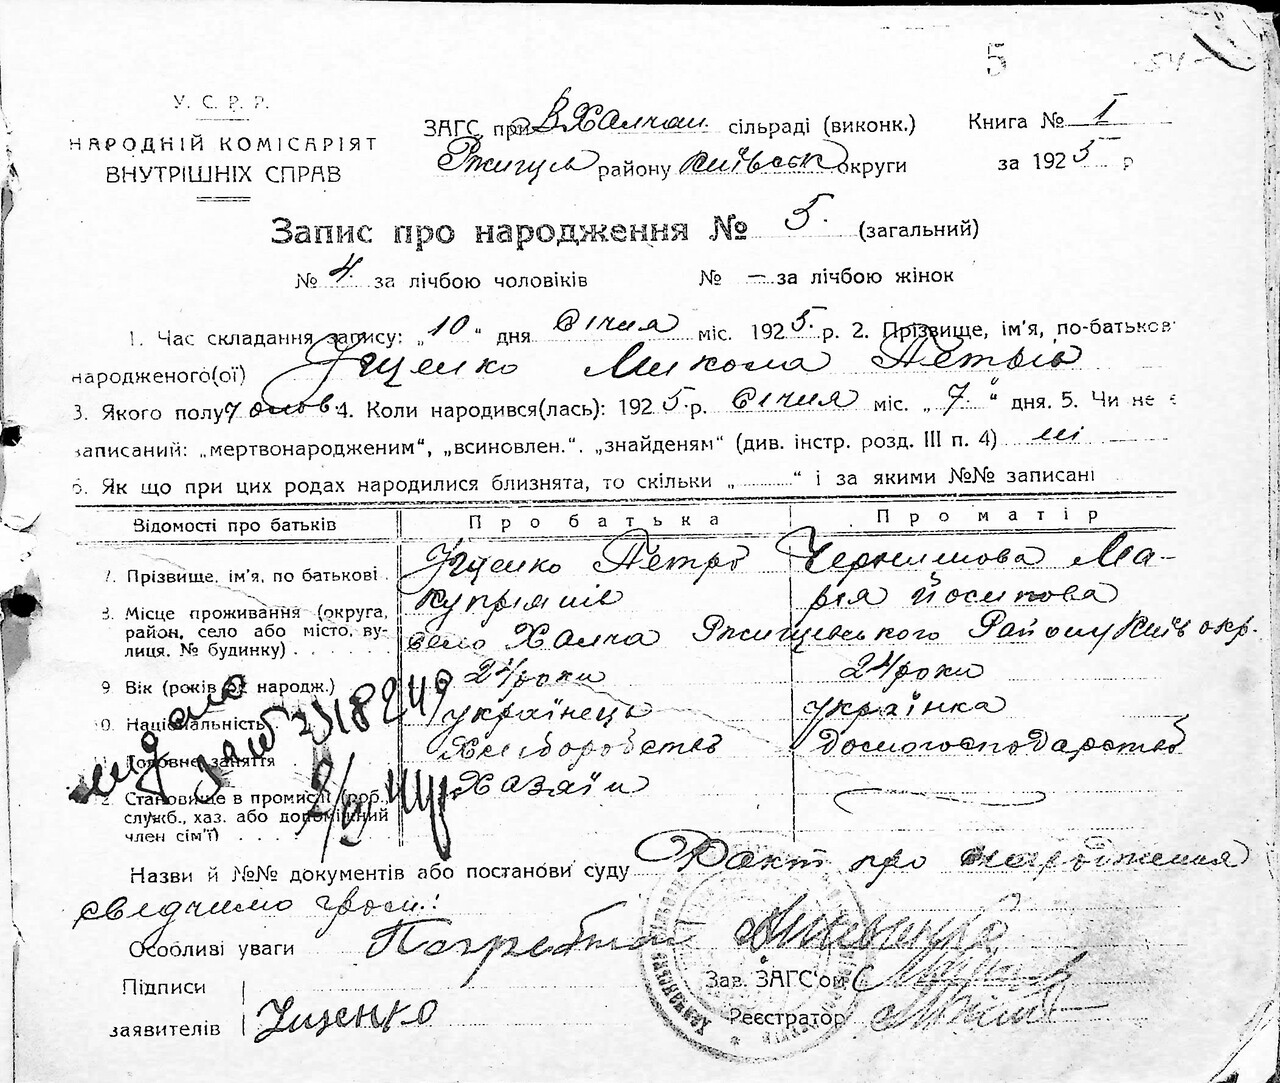 5
54
У. С. Р. Р.
НАРОДНІЙ КОМІСАРІЯТ
ВНУТРІШНІХ СПРАВ
ЗАГС при В. Халчан сільраді (виконк.)
Ржищів району Київськ округи
Книга № I
за 1925 р
Запис про народження № 5. (загальний)
№ 4. за лічбою чоловіків № — за лічбою жінок
1. Час складання запису: „10“ дня Січня міс. 1925 р. 2. Прізвище, ім'я, по-батькові
народженого(ої) Іщенко Микола Петрів
3. Якого полу чолов. 4. Коли народився(лась): 1925 р. Січня міс. „7.“ дня. 5. Чи не є
записаний: „мертвонародженим“, „всиновлен.“. „знайденям“ (див. інстр. розд. III п. 4) ні
6. Як що при цих родах народилися близнята, то скільки „ “ і за якими №№ записані
Відомості про батьків Про батька Про матір
7. Прізвище, ім'я, по батькові Іщенко Петро Чернишова Ма-
Купріянів рія Йосипова
8. Місце проживання (округа,
район, село або місто, ву-
лиця, № будинку) село Халча Ржищевського Району Київ окр.
9. Вік (років од народж.) 24 роки 24 роки
10. Національність українець українка
11. Головне заняття Хліборобство домогосподарство
12. Становище в промислі (роб., Хазяїн
служб., хаз. або допоміжний
член сім'ї)
видано
Назви й №№ документів або постанови суду Факт про народження
свідчимо гром.:
Особливі уваги Погребн
Підписи
заявителів Іщенко
Зав. ЗАГС'ом
Реєстратор